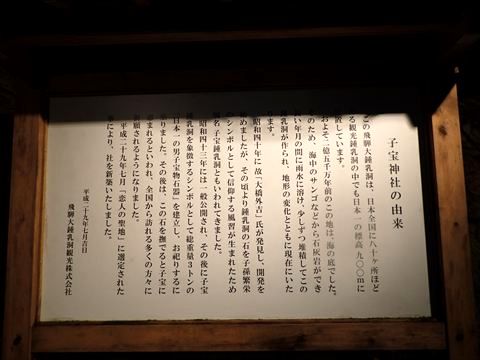 子宝神社の由来
この飛騨大鍾乳洞は、日本全国に八十ヶ所ほど
る観光鍾乳洞の中でも日本一の標高九〇〇mに
置しています。
およそ二億五千万年前のこの地は、海の底でした。
のため、海中のサンゴなどから石灰岩ができ
い年月の間に雨水に溶け、少しずつ堆積してこの
乳洞が作られ、地形の変化とともに現在にいた
ります。
昭和四十年に故「大橋外吉」氏が発見し、開発を
めましたが、その頃より鍾乳洞の石を子孫繁栄
シンボルとして信仰する風習が生まれたため
名 子宝鍾乳洞ともいわれてきました。
昭和四十三年には一般公開され、その後に子宝
鍾乳洞を象徴するシンボルとして総重量3トンの
日本一の男子宝物石器」を建立し、お祀りするに
りました。その後は、この石を撫でると子宝に
まれるといわれ、全国から訪れる多くの方々に
願されるようになりました。
平成二十九年七月「恋人の聖地」に選定された
とにより、社を新築いたしました。
平成二十九年七月吉日
飛騨大鍾乳洞観光株式会社